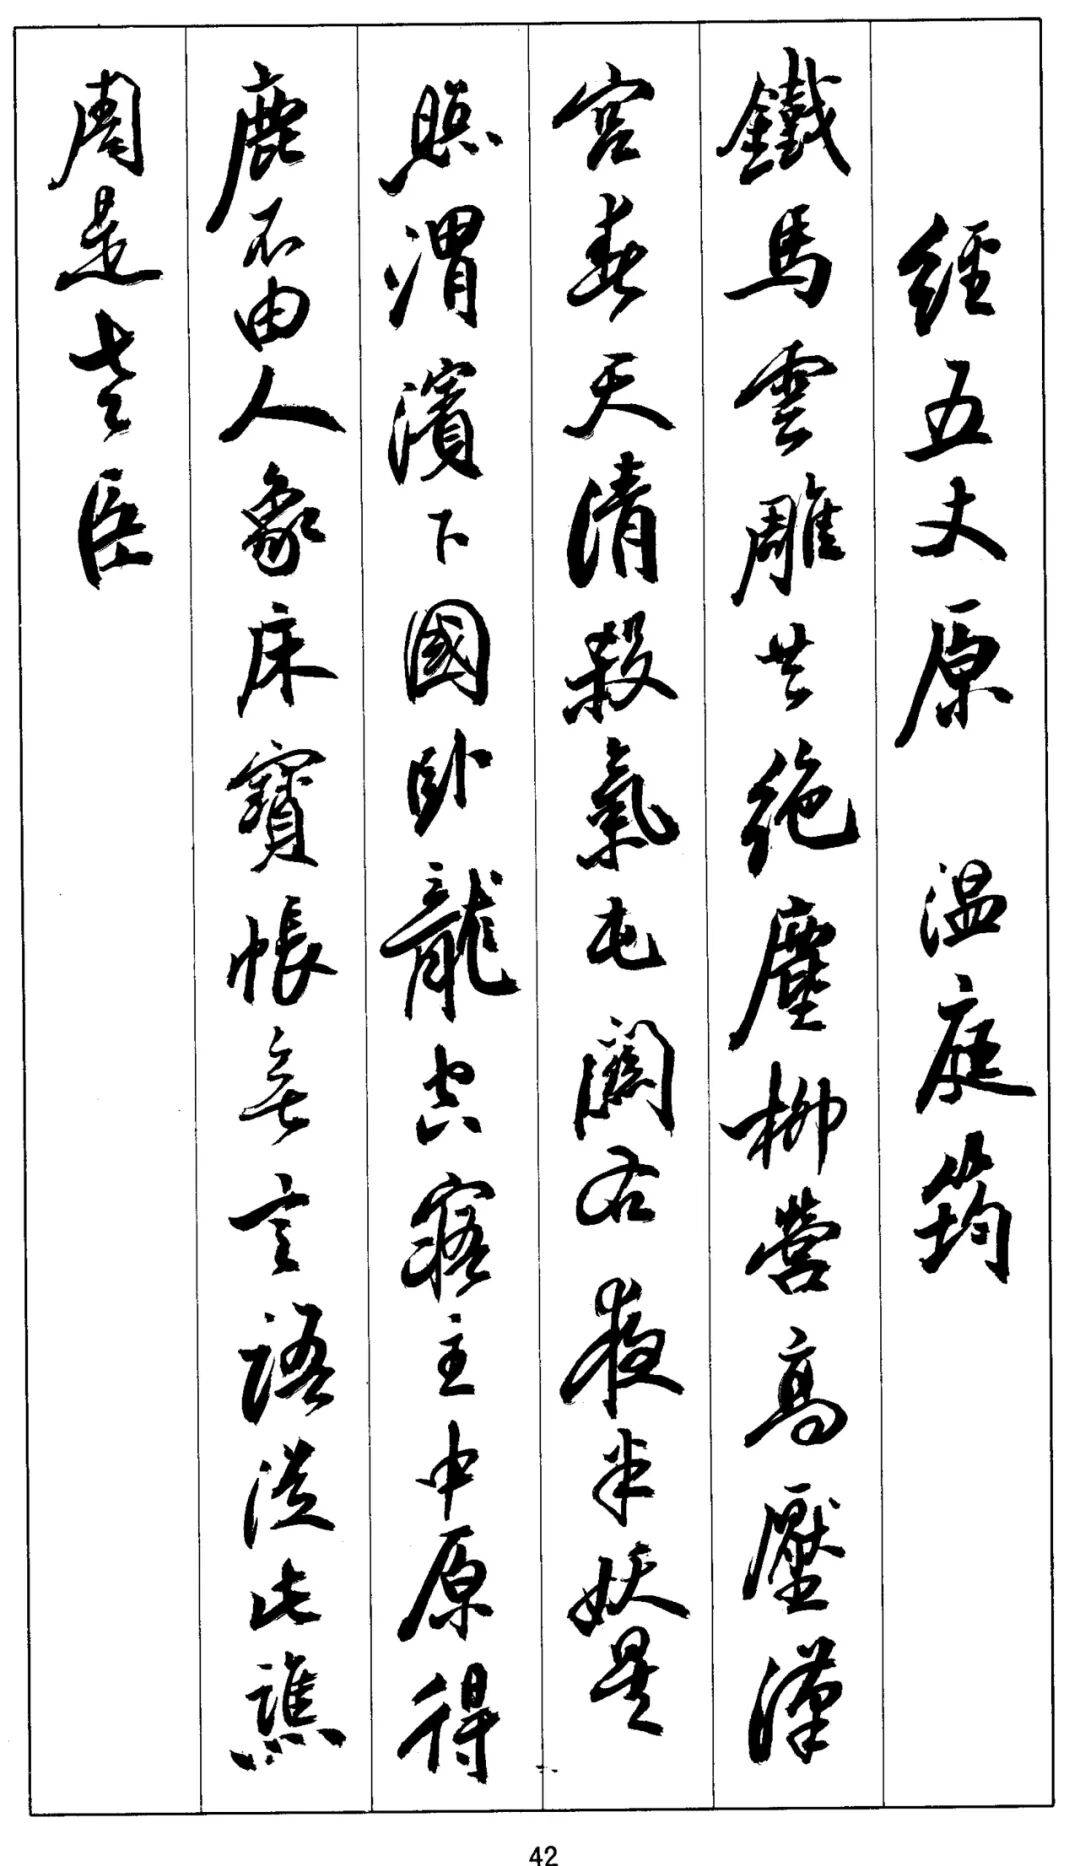 經五丈原 温庭筠
鐵馬雲雕共絶塵柳營高壓漢
宮春天清殺氣屯關右夜半妖星
照渭濱下國卧龍空寤主中原得
鹿不由人象床寶帳無言語從此譙
周是老臣
42